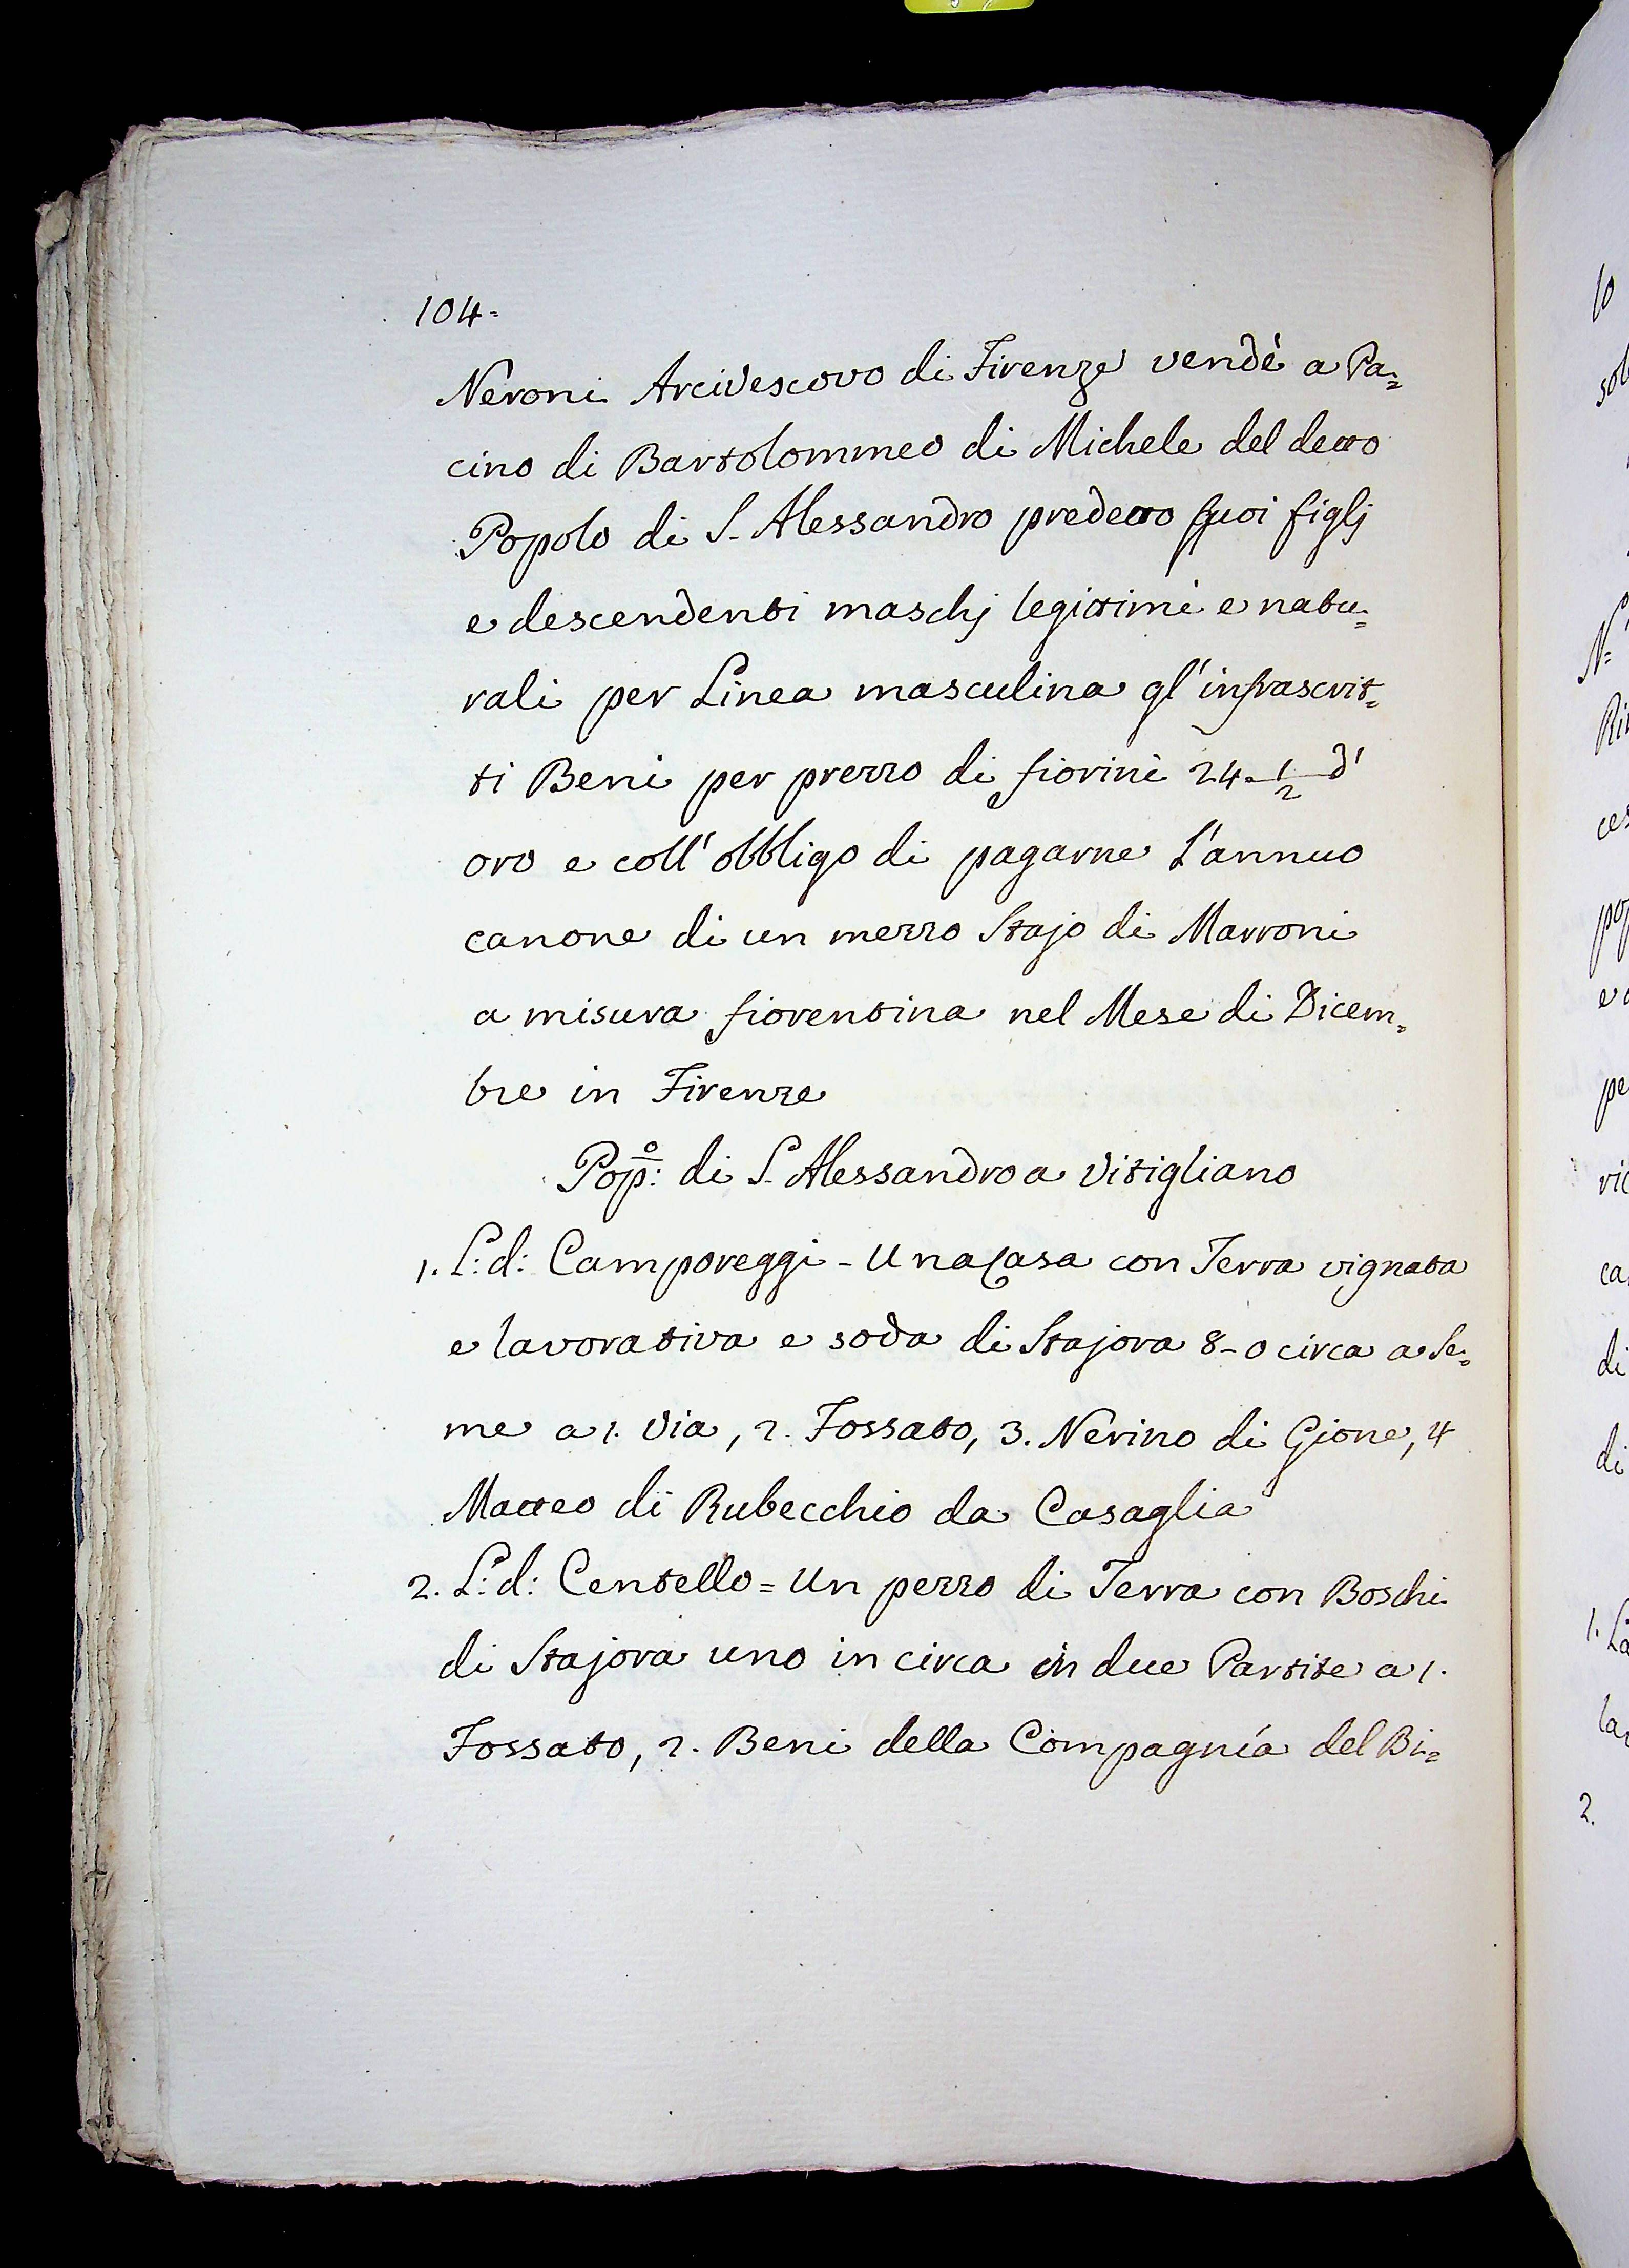 104=
Neroni Arcivescovo di Firenze vendè a Pa=
cino di Bartolommeo di Michele del detto
Popolo di S. Alessandro predetto suoi figlj
e descendenti maschj legittimi e natu=
rali per Linea masculina gl'infrascrit=
ti Beni per prezzo di fiorini 24 1/2 d'
oro e coll'obbligo di pagarne L'annuo
canone di un mezzo Stajo di Marroni
a misura fiorentina nel Mese di Dicem=
bre in Firenze
Pop:º di S. Alessandro a Vitigliano
1. L: d: Camporeggi - Una Casa con Terra vignata
e lavorativa e soda di Stajora 8-0 circa a Se=
me a 1. Via, 2. Fossato, 3. Nerino di Gione, 4
Matteo di Rubecchio da Casaglia
2. L: d: Centello = Un pezzo di Terra con Boschi
di Stajora uno in circa in due Partite a 1.
Fossato, 2. Beni della Compagnía del Bi=